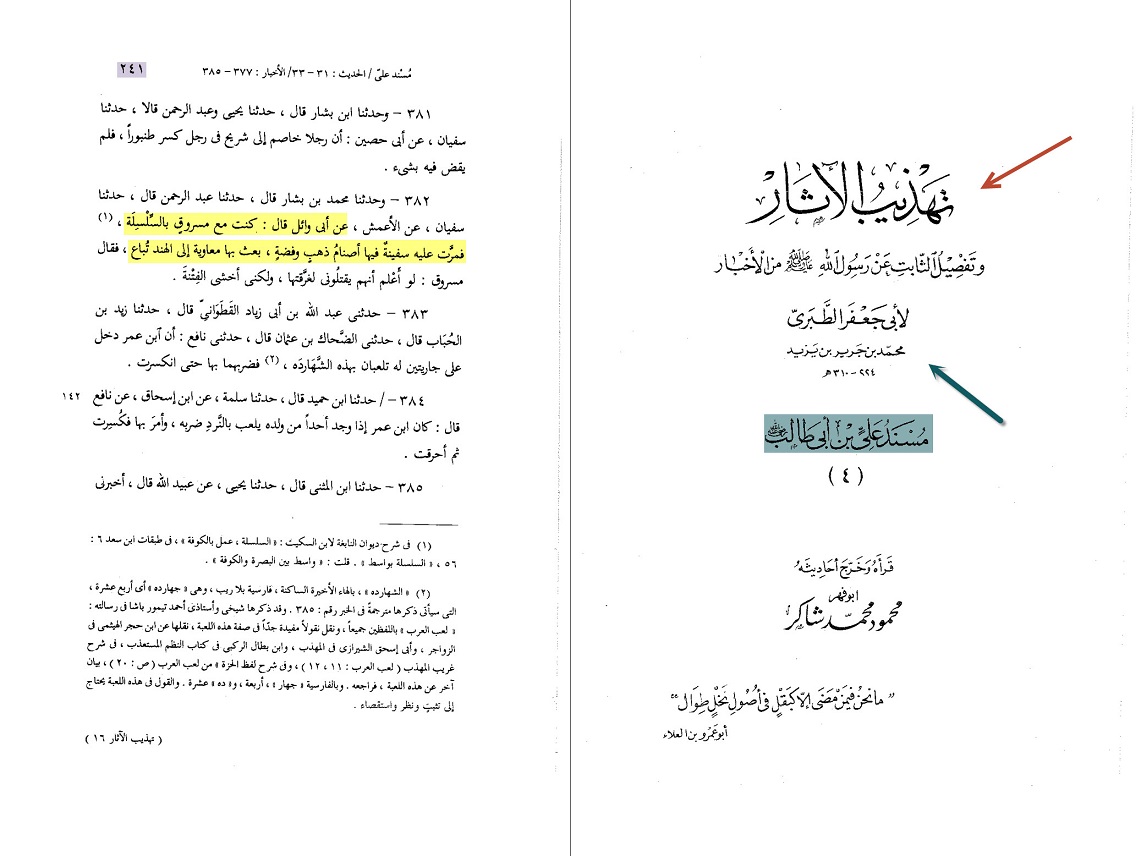 تهذيب الآثار
وتفصيل الثابت عن رسول الله ﷺ من الأخبار
لأبي جعفر الطبرى
محمد بن جرير بن يزيد
٢٢٤ - ٣١٠ هـ
مسند على بن أبى طالب
( ٤ )
قرأه وخرج أحاديثه
أبو فهر
محمود محمد شاكر
" ما نحن فيمن مضى إلا كبقل فى أصول نخل طوال "
أبو عمرو بن العلاء
مُسْند علىّ / الحديث : ٣١ – ٣٣/ الأخبار : ٣٧٧ – ٣٨٥
٢٤١
٣٨١ – وحدثنا ابن بشار قال ، حدثنا يحيى وعبد الرحمن قالا ، حدثنا
سفيان ، عن أبى حصين : أن رجلا خاصم إلى شريح فى رجل كسر طنبوراً ، فلم
يقض فيه بشىء .
٣٨٢ – وحدثنا محمد بن بشار قال ، حدثنا عبد الرحمن قال ، حدثنا
سفيان ، عن الأعمش ، عن أبى وائل قال : كنت مع مسروقٍ بالسِّلْسِلَة (١) ،
فمرَّت عليه سفينةٌ فيها أصنامُ ذهبٍ وفضةٍ ، بعث بها معاوية إلى الهند تُباع ، فقال
مسروق : لو أَعْلم أنهم يقتلُونى لغرَّقتها ، ولكنى أخشى الفِتْنةَ .
٣٨٣ – حدثنى عبد الله بن أبى زياد القَطَوَانيّ قال ، حدثنا زيد بن
الحُبَاب قال ، حدثنى الضَّحاك بن عثمان قال ، حدثنى نافع : أن آبن عمر دخل
على جاريتين له تلعبان بهذه الشَّهَاردَه ، (٢) فضربهما بها حتى انكسرت .
٣٨٤ – / حدثنا ابن حميد قال ، حدثنا سلمة ، عن ابن إسحاق ، عن نافع ١٤٢
قال : كان ابن عمر إذا وجد أحداً من ولده يلعب بالنَّردِ ضربه ، وأمرَ بها فكُسِرت
ثم أحرقت .
٣٨٥ – حدثنا ابن المثنى قال ، حدثنا يحيى ، عن عبيد الله قال ، أخبرنى
(١) فى شرح ديوان النابغة لابن السكيت : « السلسلة ، عمل بالكوفة » ، فى طبقات ابن سعد ٦ :
٥٦ ، « السلسلة بواسط » . قلت : « واسط بين البصرة والكوفة » .
(٢) « الشهارده » ، بالهاء الأخيرة الساكنة ، فارسية بلا ريب ، وهى « جهارده » أى أربع عشرة ،
التى سيأتى ذكرها مترجمةً فى الخبر رقم : ٣٨٥ . وقد ذكرها شيخى وأستاذى أحمد تيمور باشا فى رسالته :
« لعب العرب » باللفظين جميعاً ، ونقل نقولاً مفيدة جدًّا فى صفة هذه اللعبة ، نقلها عن ابن حجر الهيثمى فى
الزواجر ، وأبى إسحق الشيرازى فى المهذب ، وابن بطال الركبى فى كتاب النظم المستعذب ، فى شرح
غريب المهذب ( لعب العرب : ١١ ، ١٢ ) ، وفى شرح لفظ الحزة » من لعب العرب ( ص : ٢٠ ) ، بيان
آخر عن هذه اللعبة ، فراجعه . وبالفارسية « جهار » ، أربعة ، و « ده » عشرة . والقول فى هذه اللعبة يحتاج
إلى تثبتٍ ونظر واستقصاء .
( تهذيب الآثار ١٦ )